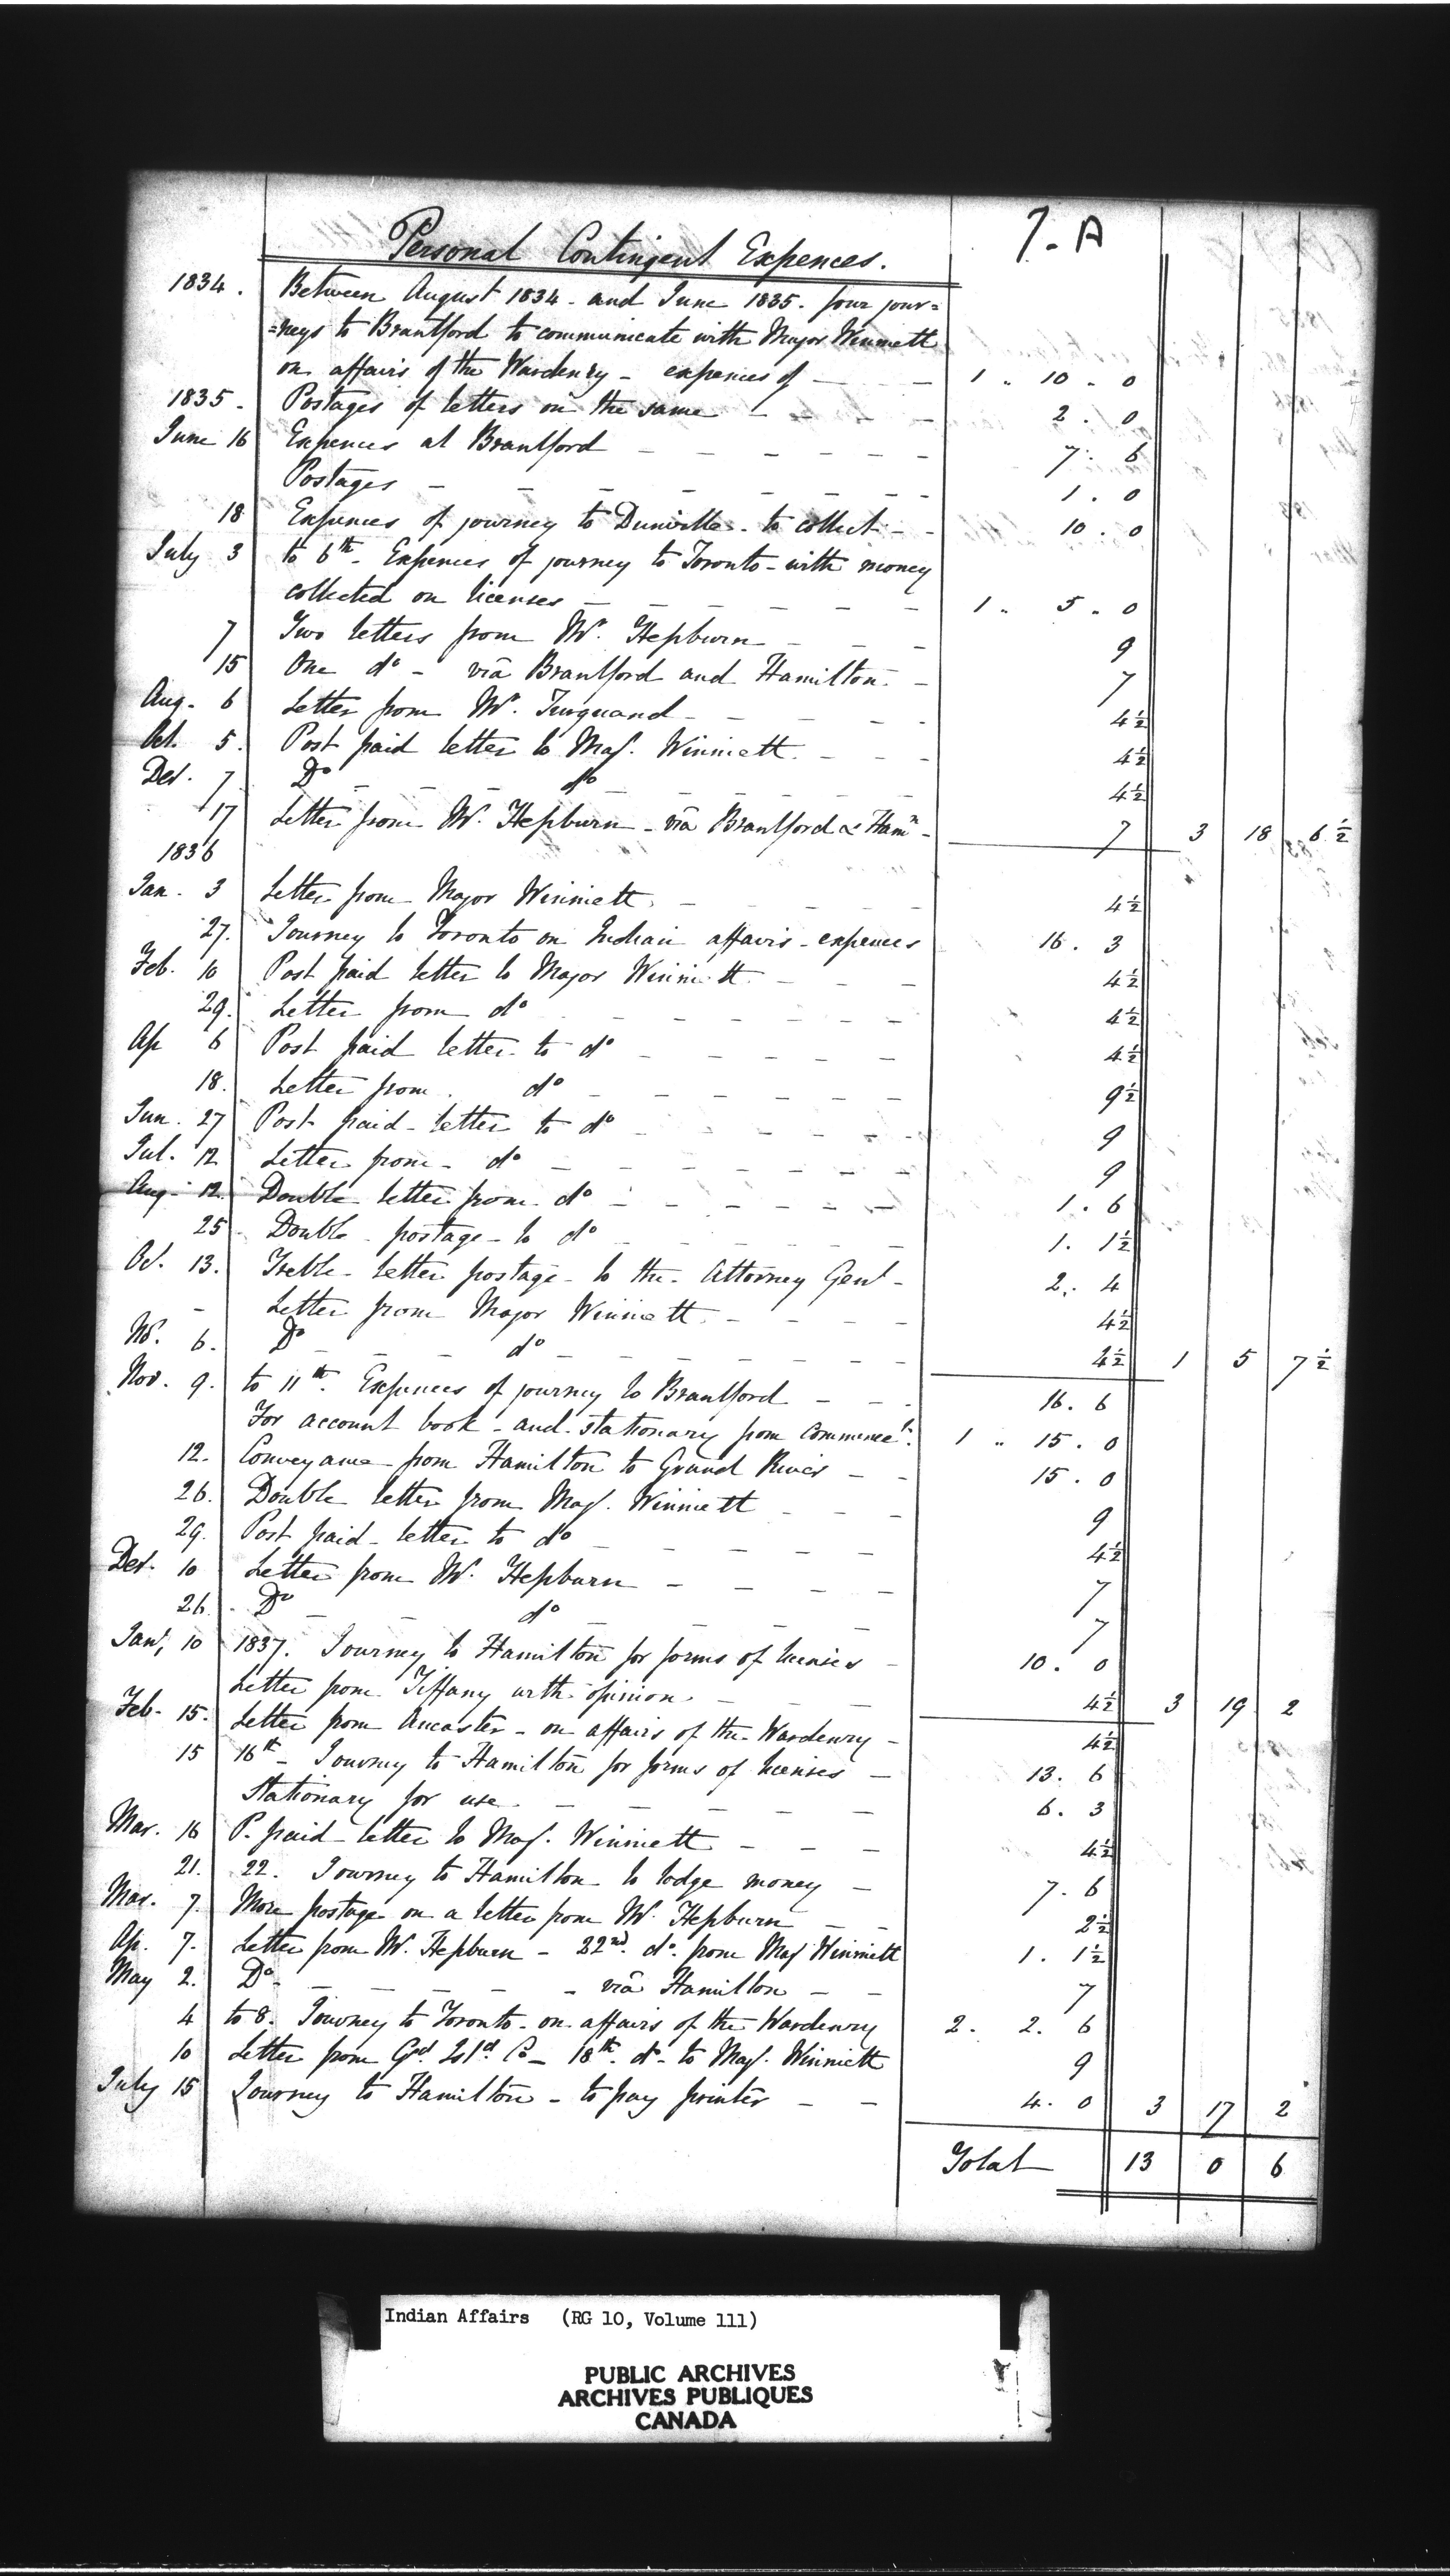 7. A
Personal Contingent Expences.
1834. Between August 1834 - and June 1835. four jour=
=neys to Brantford to communicate with Major Winniett
on affairs of the Wardenry - expences of — — 1 .. 10 . 0
1835. Postages of letters on the same - - - 2 . 0
June 16 Expences at Brantford - - - - - - 7 . 6
Postages - - - - - - - 1 . 0
18 Expences of journey to Dunville - to collect - - 10 . 0
July 3 to 6th - Expences of journey to Toronto - with money
collected on licenses - - - - - - 1 .. 5 . 0
7 Two letters from Mr. Hepburn - - - 9
15 One do - viâ Brantford and Hamilton - - 7
Aug. 6 Letter from Mr. Turquand - - - - 4½
Oct. 5. Post paid letter to Maj. Winniett - - - 4½
Dec. 7 Do - - - do - - - - - 4½
17 Letter from Mr. Hepburn - viâ Brantford & Hamn - 7 3 18 6½
1836
Jan. 3 Letter from Major Winniett - - - - 4½
27. Journey to Toronto on Indian affairs - expences 16 . 3
Feb. 10 Post paid letter to Major Winniett - - - 4½
29. Letter from do - - - - - - 4½
Ap 6 Post paid letter to do - - - - - 4½
18. Letter from do - - - - - - 9½
Jun. 27 Post paid - letter to do - - - - - 9
Jul. 12 Letter from - do - - - - - - 9
Aug. 12. Double letter from do - - - - - - 1 . 6
25 Double postage - to do - - - - - 1 . 1½
Oct. 13. Treble - letter postage - to the - Attorney Genl - 2 . 4
- Letter from Major Winniett - - - - 4½
No. 6. Do - - - do - - - - - 4½ 1 5 7½
Nov. 9. to 11th. Expences of journey to Brantford - - - 16 . 6
For account book - and - stationary from commencet. 1 .. 15 . 0
12. Conveyance from Hamilton to Grand River - - 15 . 0
26. Double letter from Maj. Winniett - - - 9
29. Post paid - letter to do - - - - - 4½
Dec. 10 Letter from Mr. Hepburn - - - - 7
26. Do - - do - - - - 7
Jany. 10 1837. Journey to Hamilton for forms of licenses - 10 . 0
Letter from Tiffany with opinion - - - 4½ 3 19 2
Feb. 15. Letter from Ancaster - on affairs of the Wardenry - 4½
15 16th - Journey to Hamilton for forms of licenses - 13 . 6
Stationary for use - - - - - - 6 . 3
Mar. 16 P. paid - letter to Maj. Winniett - - - 4½
21. 22. Journey to Hamilton to lodge money - 7 . 6
Mar. 7. More postage on a letter from Mr. Hepburn - - 2½
Ap. 7. Letter from Mr. Hepburn - 22nd. do. from Maj Winniett 1 . 1½
May 2. Do - - - - - viâ Hamilton - - 7
4 to 8. Journey to Toronto - on affairs of the Wardenry 2 . 2 . 6
10 Letter from - 18th. do - to Maj. Winniett 9
July 15 Journey to Hamilton - to pay printer - - 4 . 0 3 17 2
Total 13 0 6
Indian Affairs (RG 10, Volume 111)
PUBLIC ARCHIVES
ARCHIVES PUBLIQUES
CANADA